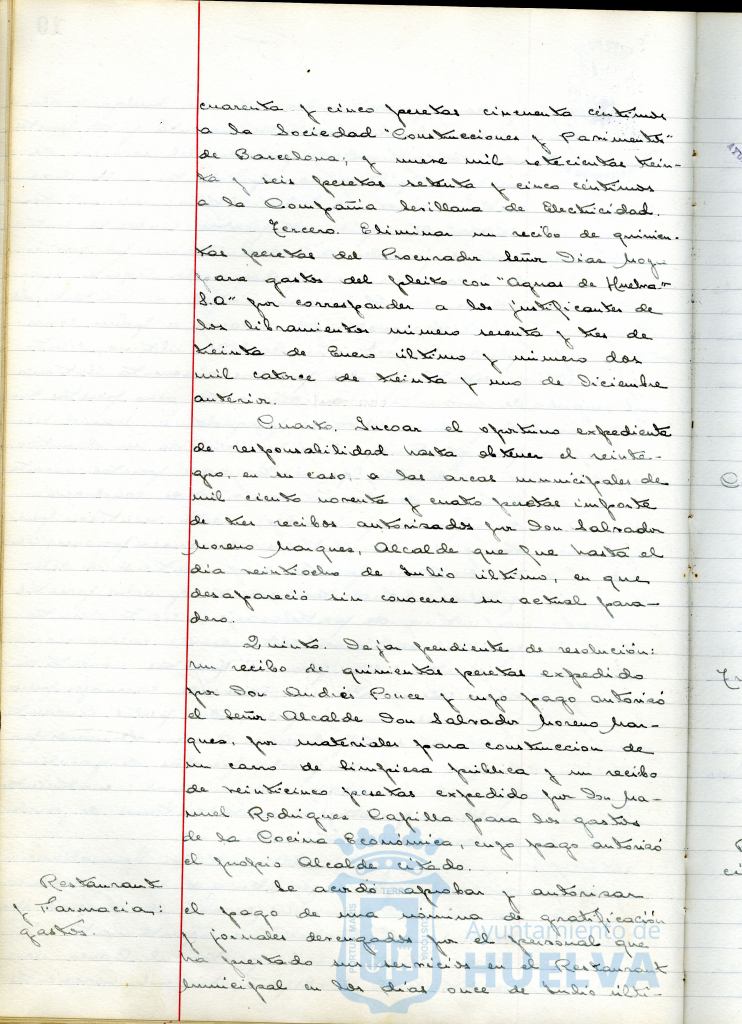 cuarenta y cinco pesetas cincuenta céntimos
a la Sociedad "Construcciones y Pavimentos"
de Barcelona; y nueve mil setecientas trein-
ta y seis pesetas setenta y cinco céntimos
a la Compañia Sevillana de Electricidad.
Tercero. Eliminar un recibo de quinien-
tas pesetas del Procurador Señor Diaz
para gastos del pleito con "Aguas de Huelva-
S.A" por corresponder a los justificantes de
los libramientos número sesenta y tres de
treinta de Enero último y número dos
mil catorce de treinta y uno de Diciembre
anterior.
Cuarto. Incoar el oportuno expediente
de responsabilidad hasta obtener el reinte-
gro, en su caso, a las arcas municipales de
mil ciento noventa y cuatro pesetas importe
de tres recibos autorizados por Don Salvador
Moreno Marques, Alcalde que fue hasta el
dia veintiocho de Julio último, en que
desapareció sin conocerse su actual para-
dero.
Quinto. Dejar pendiente de resolución:
un recibo de quinientas pesetas expedido
por Don Andrés Ponce y cuyo pago autorizó
el Señor Alcalde Don Salvador Moreno Mar-
ques, por materiales para construccion de
un carro de limpieza pública y un recibo
de veinticinco pesetas expedido por Don Ma-
nuel Rodriguez Capilla para los gastos
de la Cocina Económica, cuyo pago autorizó
el propio Alcalde citado.
Restaurant
y Farmacia:
gastos.
Se acordó aprobar y autorizar
el pago de una nómina de gratificación
y jornales devengados por el personal que
ha prestado sus servicios en el Restaurant
Municipal en los dias once de Julio últi-
Ayuntamiento de
HUELVA